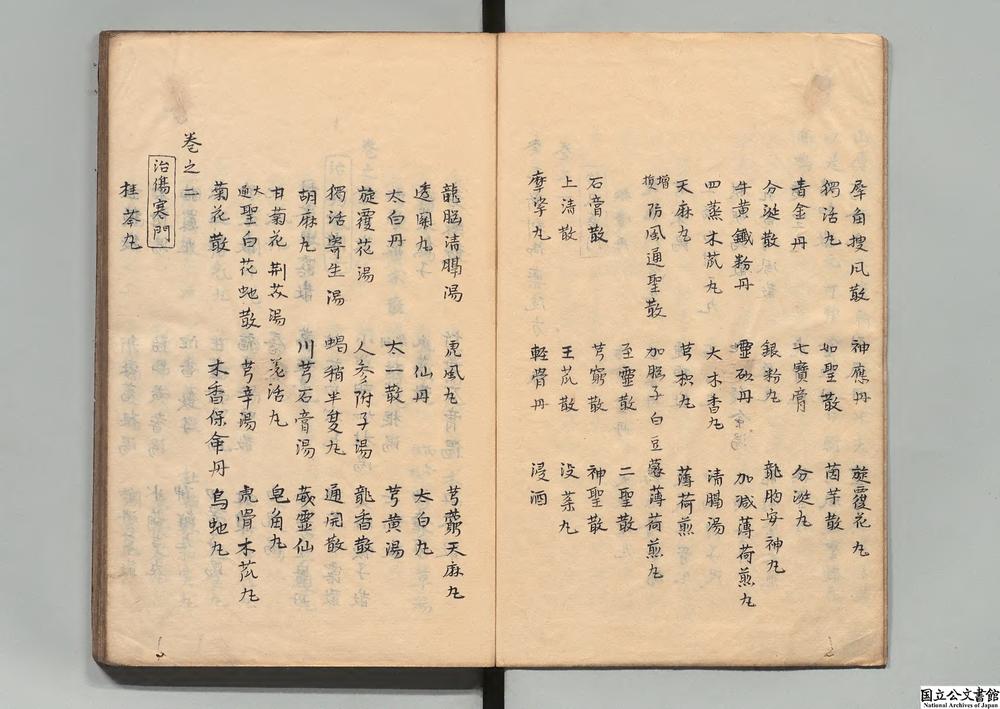 犀角搜風散 神應丹 旋覆花丸
獨活丸 如聖散 茵芋散
青金丹 七寶膏 分涎丸
分涎散 銀粉丸 龍腦安神丸
牛黄鐵粉丹 靈砂丹 加减薄荷煎丸
四蒸木苽丸 大木香丸 清膈湯
天麻丸 芎枳丸 薄荷煎
増損防風通聖散 加脳子白豆蔲薄荷煎丸
石膏散 至靈散 二聖散
上清散 芎藭散 神聖散
摩挲丸 王苽散 没藥丸
輕骨丹 浸酒
龍脳清膈湯 虎風丸 芎藭天麻丸
透関丸 仙丹 太白丸
太白丹 太一散 芎黄湯
旋覆花湯 人参附子湯 龍香散
獨活寄生湯 蝎稍半夏丸 通関散
胡麻丸 川芎石膏湯 葳靈仙
甘菊花 荆芥湯 羗活丸 皂角丸
大通聖白花虵散 芎辛湯 虎骨木苽丸
菊花散 木香保命丹 烏虵丸
巻之二
治傷寒門
桂苓丸
国立公文書館
National Archives of Japan